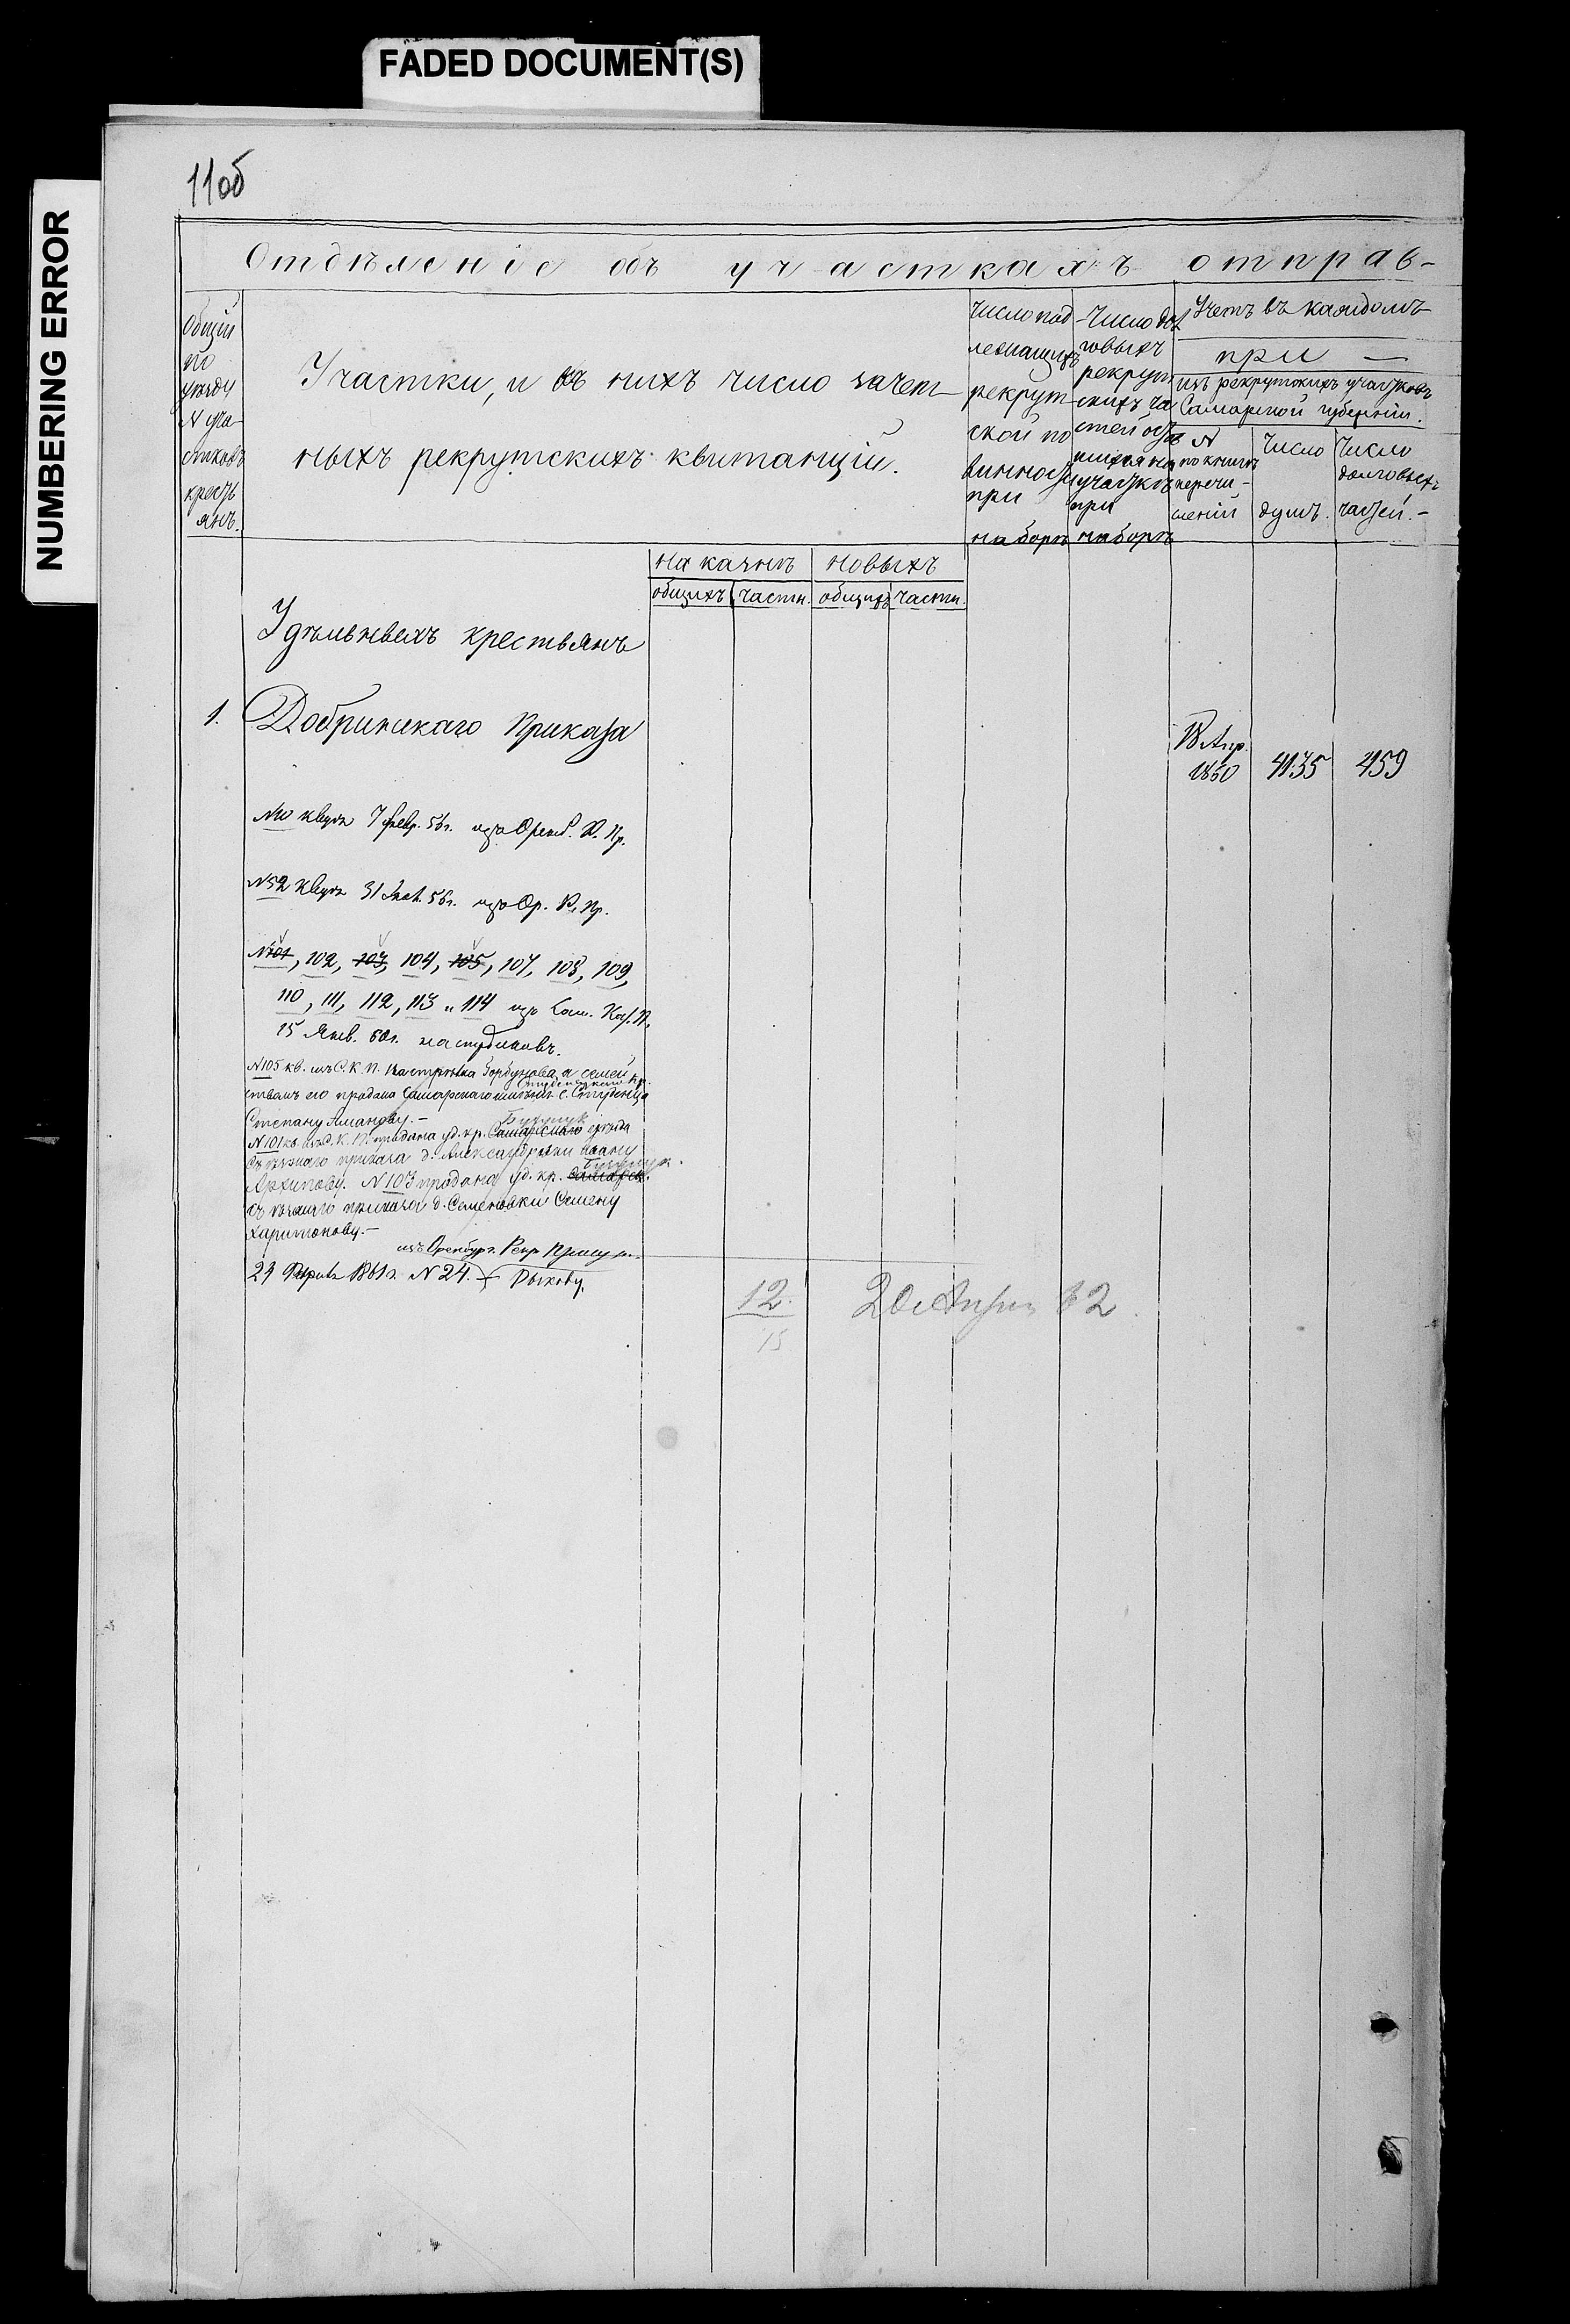 FADED DOCUMENT(S)
NUMBERING ERROR
11об
Отдѣленіе объ участкахъ отправ-
Общій
по
уѣзду
№ уча-
стковъ
кресть
янъ.
Участки, и въ нихъ число зачет-
ныхъ рекрутскихъ квитанцій.
Число под
лежащихъ
рекрут-
ской по
винности
при
наборѣ
Число дол
говыхъ
рекрут
скихъ ча
стей
участкѣ
при
наборѣ
Учетъ въ каждомъ
при —
изъ рекрутскихъ участковъ
Самарской губерніи.
№
по книгѣ
перечи-
сленій
Число
душъ.
Число
долговыхъ
частей.-
на казнѣ
новыхъ
общихъ
частн.
общихъ
частн.
Удѣльныхъ крестьянъ
1.
Добринскаго Приказа
18 Апр.
1860
4135
459
№10 7 февр. 56г. изъ Оренб. Р. Пр.
№52 31 56г. изъ Ор. Р. Пр.
№101, 102, 103, 104, 105, 107, 108, 109,
110, 111, 112, 113 и 114 изъ Сам. Каз. П.
15 Янв. 60г.
№105 кв. изъ С. К. П. Горбунова, а семей
ствомъ его продана Самарскаго с. Студенца
Степану
Бузулук
№101 кв. изъ С. К. П. продана уд. кр. Самарскаго уѣзда
Съѣзжаго приказа д. Александровки Ивану
Бузулук.
Архипову. №103 продана уд. кр. Самарск.
Съѣзжаго приказа д. Семеновки Семену
Харитонову.-
изъ Оренбург. Рекр. Присут.
1861г. №24. Рыкову.
12.
15
20 Апрѣл 62